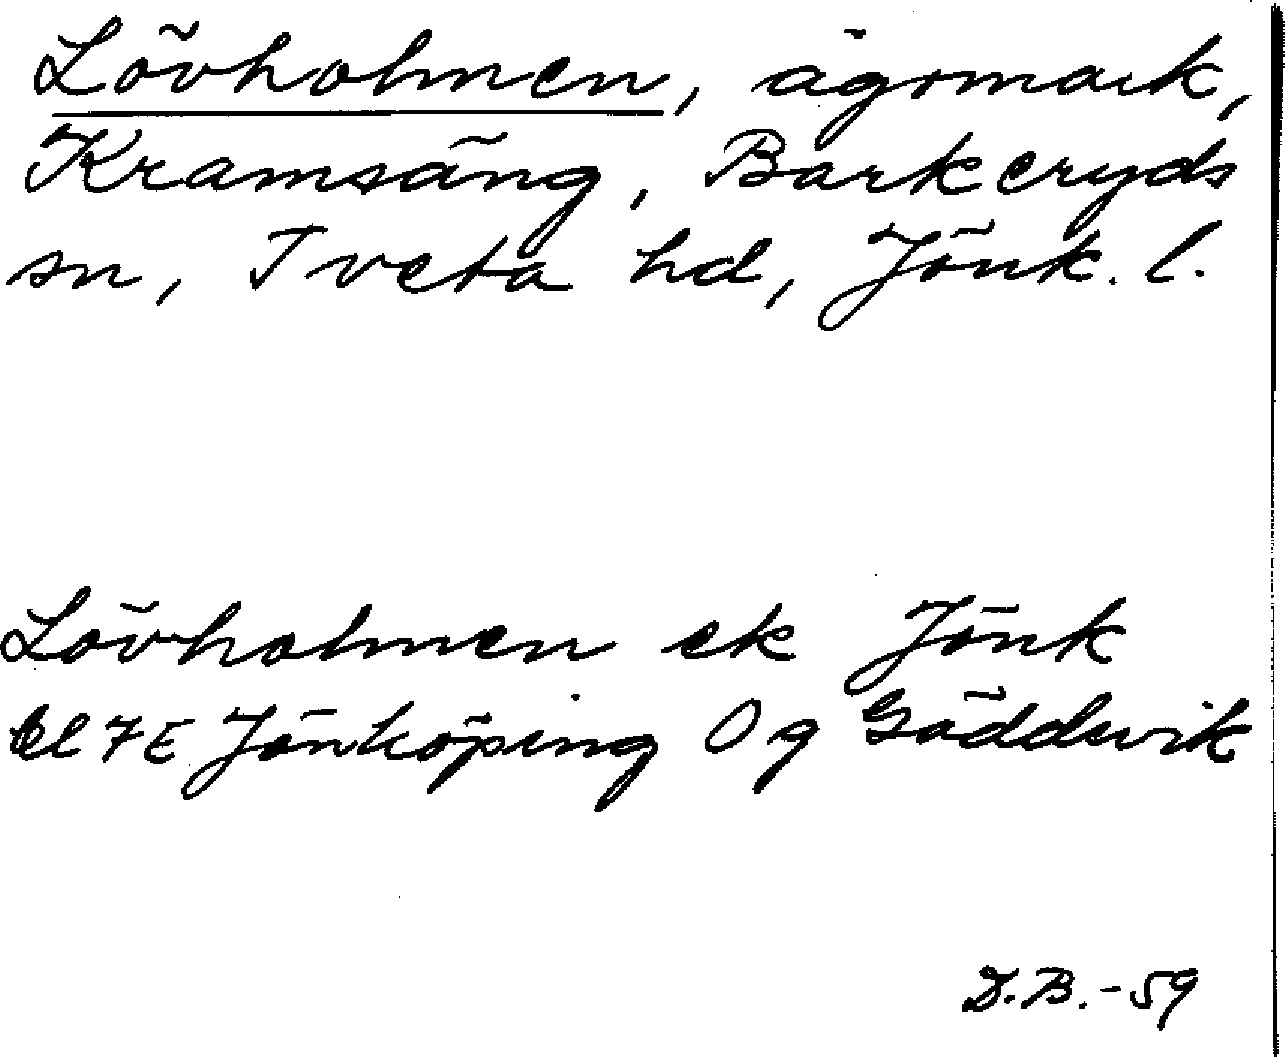 Lövholmen, ägomark,
Kramsäng, Barkeryds
sn, Tveta hd, Jönk. l.
Lövholmen ek Jönk
bl 7E Jönköping Og Gäddvik
D.B. -59